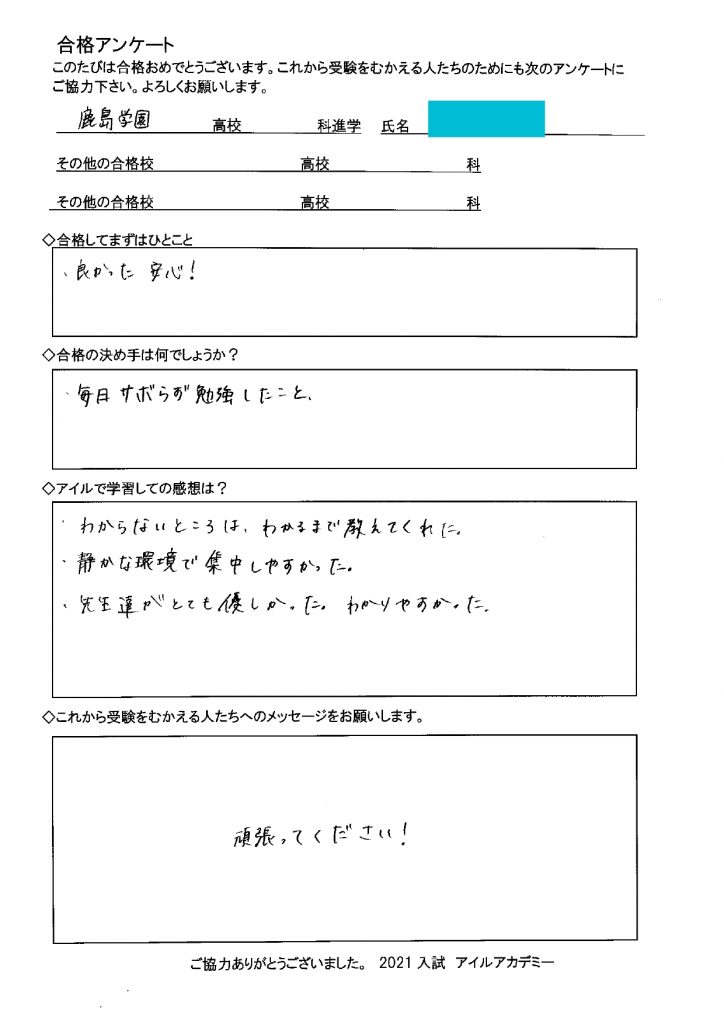 合格アンケート
このたびは合格おめでとうございます。これから受験をむかえる人たちのためにも次のアンケートに
ご協力下さい。よろしくお願いします。
鹿島学園 高校 科進学 氏名
その他の合格校 高校 科
その他の合格校 高校 科
◇合格してまずはひとこと
・良かった 安心！
◇合格の決め手は何でしょうか？
・毎日サボらず勉強したこと、
◇アイルで学習しての感想は？
・わからないところは、わかるまで教えてくれた。
・静かな環境で集中しやすかった。
・先生達がとても優しかった。わかりやすかった。
◇これから受験をむかえる人たちへのメッセージをお願いします。
頑張ってください！
ご協力ありがとうございました。 2021 入試 アイルアカデミー